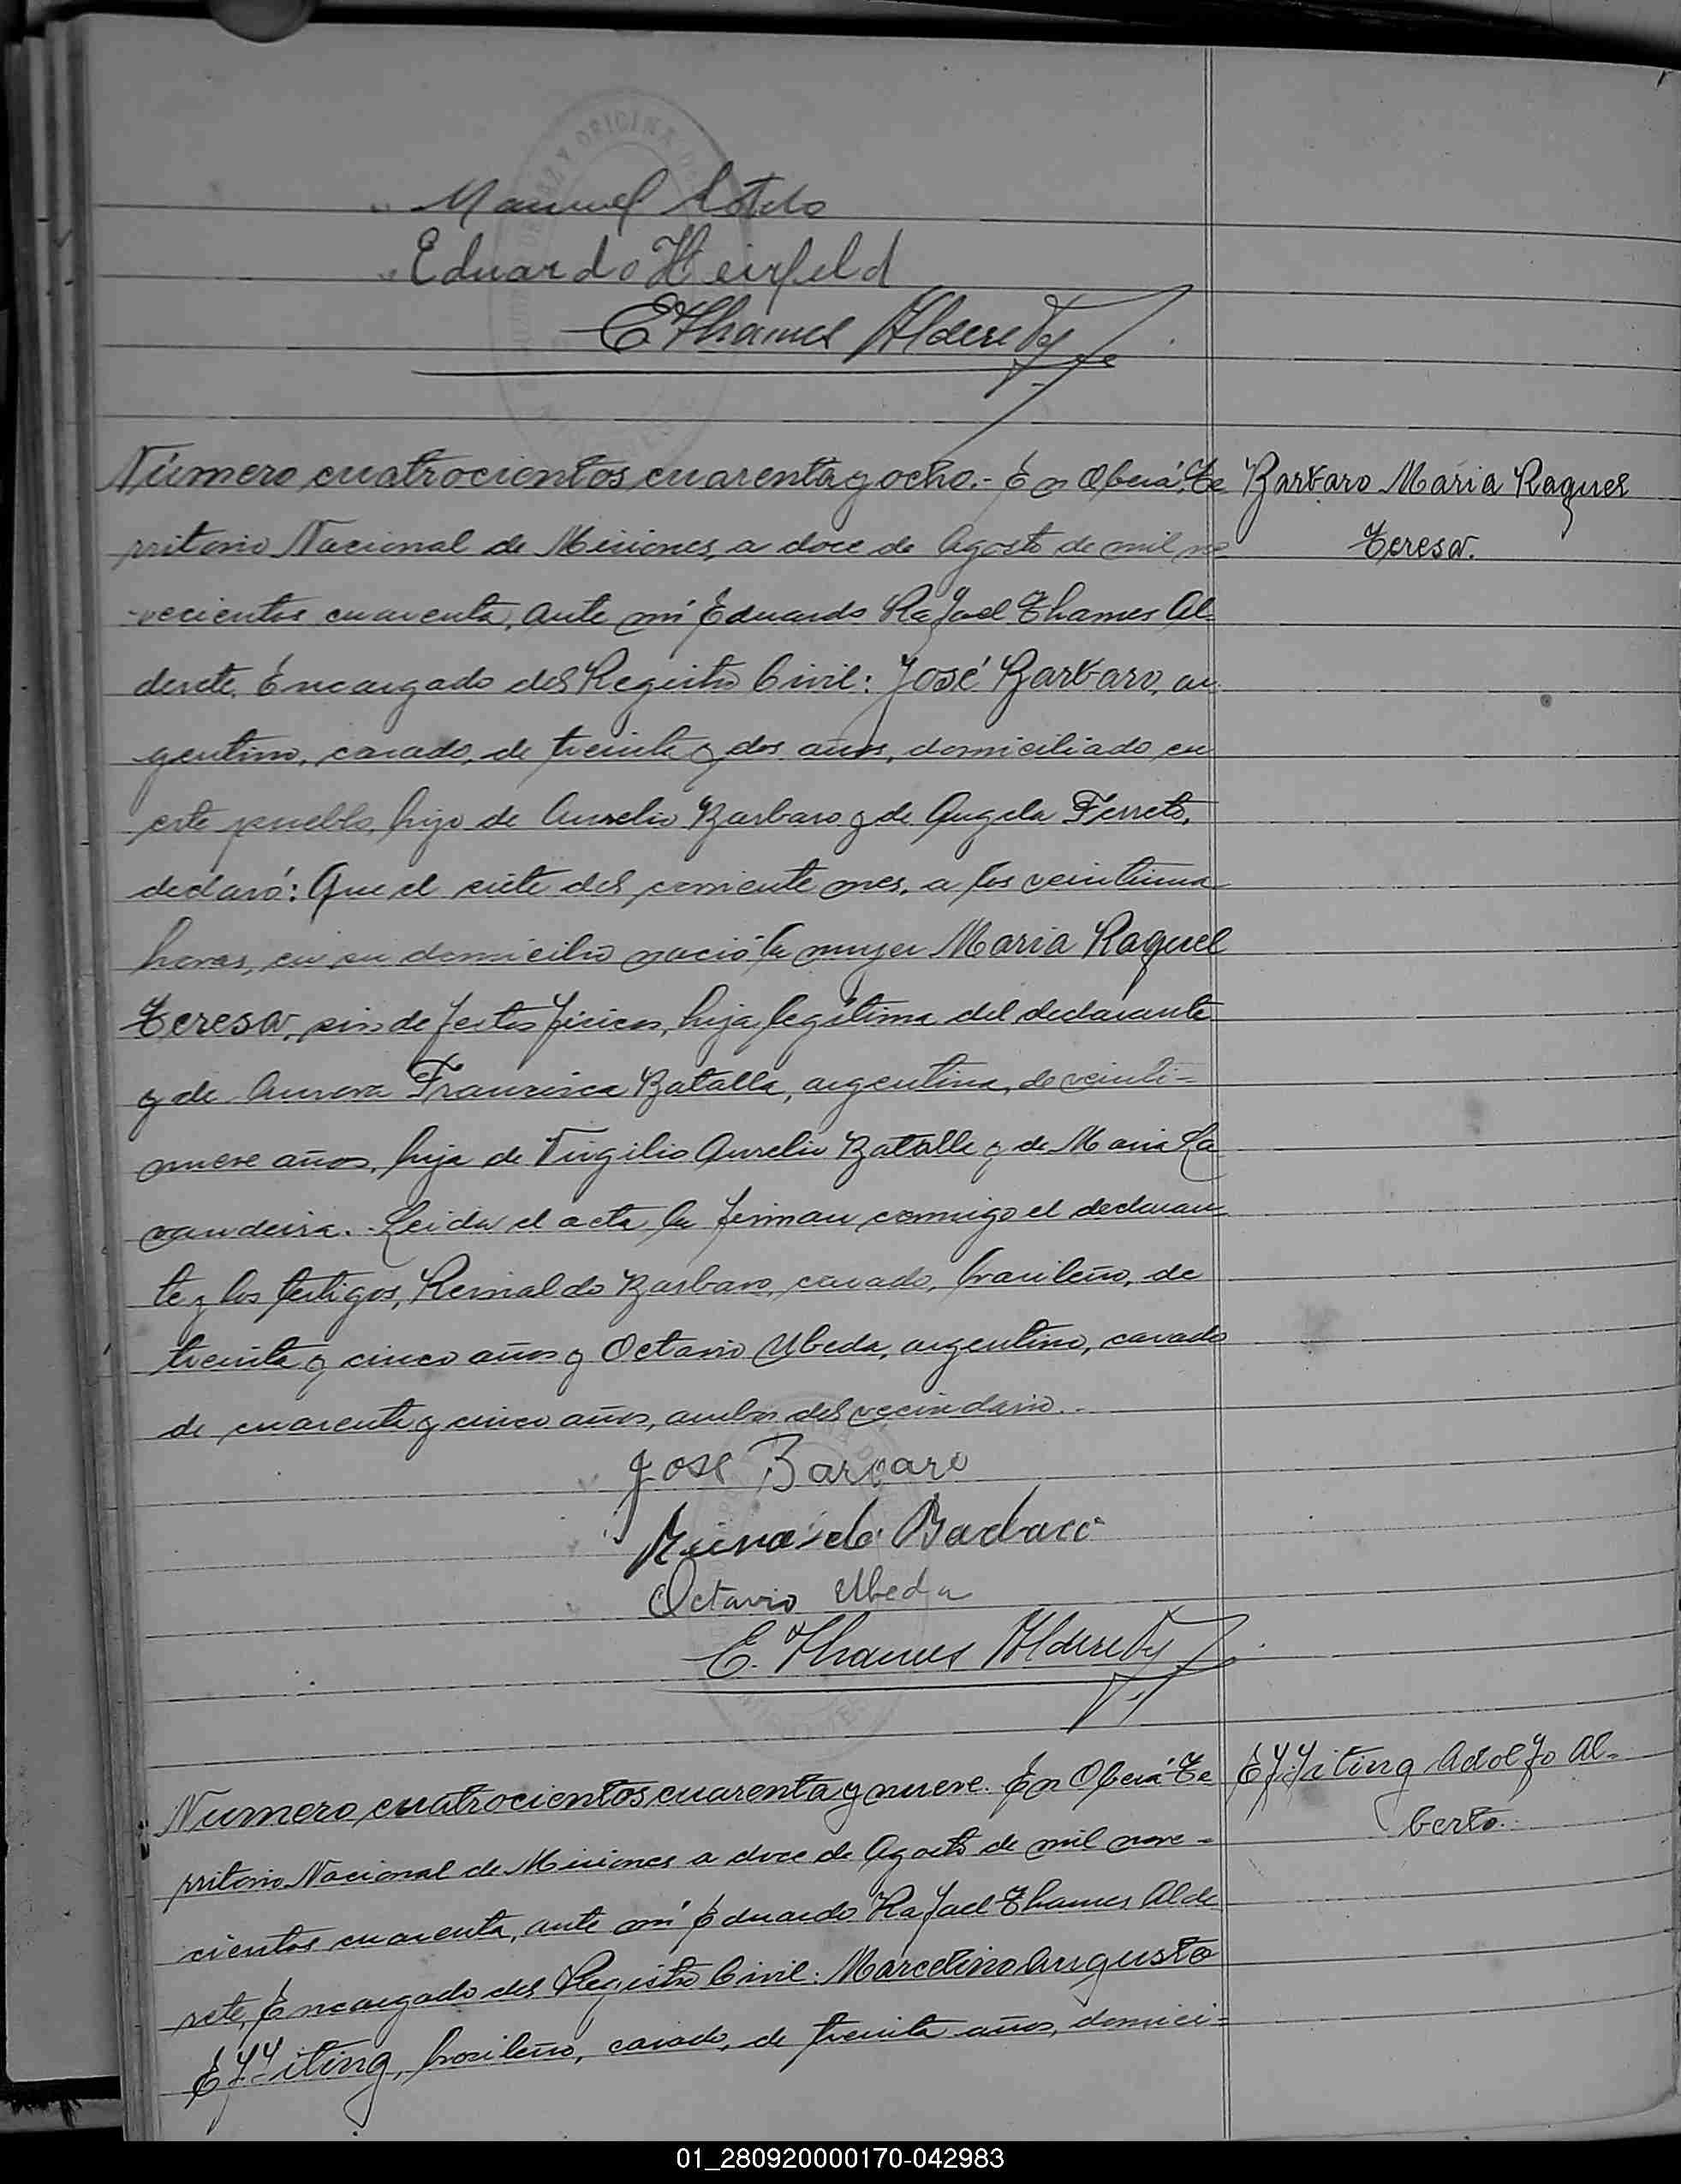 Manuel Sotelo
Eduardo Heirfeld
E Thames Alderete
Número cuatrocientos cuarenta y ocho.- En Oberá, Te
rritorio Nacional de Misiones, a doce de Agosto de mil no
vecientos cuarenta, ante mí Eduardo Rafael Thames Al-
derete, Encargado del Registro Civil: José Barbaro, ar
gentino, casado, de treinta y dos años, domiciliado en
este pueblo, hijo de Aurelio Barbaro y de Angela Ferreto,
declaró: Que el siete del corriente mes, a las veintiuna
horas, en su domicilio nació la mujer Maria Raquel
Teresa, sin defectos físicos, hija legítima del declarante
y de Aurora Francisca Batalla, argentina, de veinti-
nueve años, hija de Virgilio Aurelio Batalla y de Maria La
vandeira. Leida el acta la firman conmigo el declaran
te y los testigos, Reinaldo Barbaro, casado, brasileño, de
treinta y cinco años y Octavio Ubeda, argentino, casado
de cuarenta y cinco años, ambos del vecindario.-
Barbaro Maria Raquel
Teresa.
Jose Barbaro
Reinaldo Barbaro
Octavio Ubeda
E. Thames Alderete
Numero cuatrocientos cuarenta y nueve. En Oberá Te
rritorio Nacional de Misiones a doce de Agosto de mil nove-
cientos cuarenta, ante mí Eduardo Rafael Thames Alde
rete, Encargado del Registro Civil: Marcelino Augusto
Effiting, brasileño, casado, de treinta años, domici-
Effiting Adolfo Al-
berto.
01_280920000170-042983